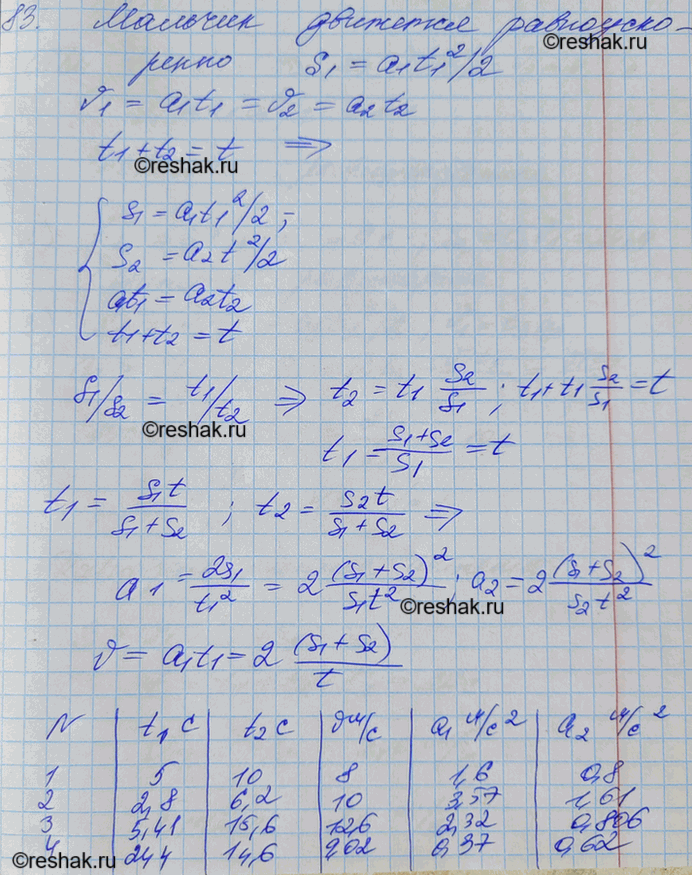 83. Мальчик движется равноуско-
©reshak.ru
ренно S₁ = a₁t₁²/2
v₁ = a₁t₁ = v₂ = a₂t₂
t₁+t₂ = t ⇒
©reshak.ru
{ S₁ = a₁t₁²/2;
S₂ = a₂t²/2
at₁ = a₂t₂
t₁+t₂ = t
S₁/S₂ = t₁/t₂ ⇒ t₂ = t₁ S₂/S₁ ; t₁+t₁ S₂/S₁ = t
©reshak.ru
t₁ = (S₁+S₂)/S₁ = t
t₁ = S₁t/(S₁+S₂) ; t₂ = S₂t/(S₁+S₂) ⇒
a₁ = 2S₁/t₁² = 2 (S₁+S₂)²/(S₁t²) ; a₂ = 2 (S₁+S₂)²/(S₂t²)
©reshak.ru
v = a₁t₁ = 2 (S₁+S₂)/t
N | t₁ c | t₂ c | v м/с | a₁ м/с² | a₂ м/с²
1 | 5 | 10 | 8 | 1,6 | 0,8
2 | 2,8 | 6,2 | 10 | 3,57 | 1,61
3 | 5,41 | 15,6 | 12,6 | 2,32 | 0,806
4 | 24,4 | 14,6 | 9,02 | 0,37 | 0,62
©reshak.ru
©reshak.ru